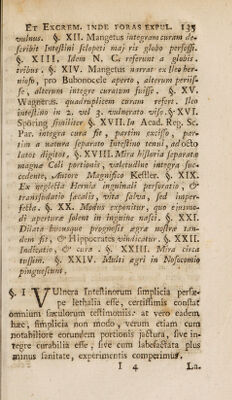 ET EXCREM. INDE FORAS EXPUL. 135
vulnus. §. XII. Mangetus integram curam de-
scribit Intestini sclopeti maj ris globo perfossi.
§. XIII. Idem N. C. referunt a globis
tribus. §. XIV. Mangetus narrat ex Ileo her-
nioso, pro Bubonocele aperto, alterum periis-
se, alterum integre curatum fuisse. §. XV.
Wagnerus, quadruplicem curam refert, Ileo
intestino in 2. vel 3. vulnerato viso. §. XVI.
Sporing similiter §. XVII. In Acad. Reg. Sc.
Par. integra cura fit, partim exciso, par-
tim a natura separato Intestino tenui, ad octo
latos digitos. §. XVIII. Mira historia separatæ
magnæ Coli portionis, valetudine integra suc-
cedente, Autore Magnifico Kestler. §. XIX.
Ex neglecta Hernia inguinali perforatio, &
transsudatio fæcalis, vita salva, sed imper-
fecta. §. XX. Modus exponitur, quo ejusmo-
di aperturæ solent in inguine nasci. §. XXI.
Dilata hucusque prognosis ægræ nostræ tan-
dem fit, & Hippocrates vindicatur. §. XXII.
Indicatio, & cura. §. XXIII. Mira circa
tussim. §. XXIV. Multi ægri in Nosocomio
pinguescunt.
§. I. VUlnera Intestinorum simplicia persæ-
pe lethalia esse, certissimis constat
omnium sæculorum testimoniis: at vero eadem
hæc, simplicia non modo, verum etiam cum
notabiliore eorundem portionis jactura, sive in-
tegre curabilia esse, sive cum labefactata plus
minus sanitate, experimentis comperimus.
I 4 La-